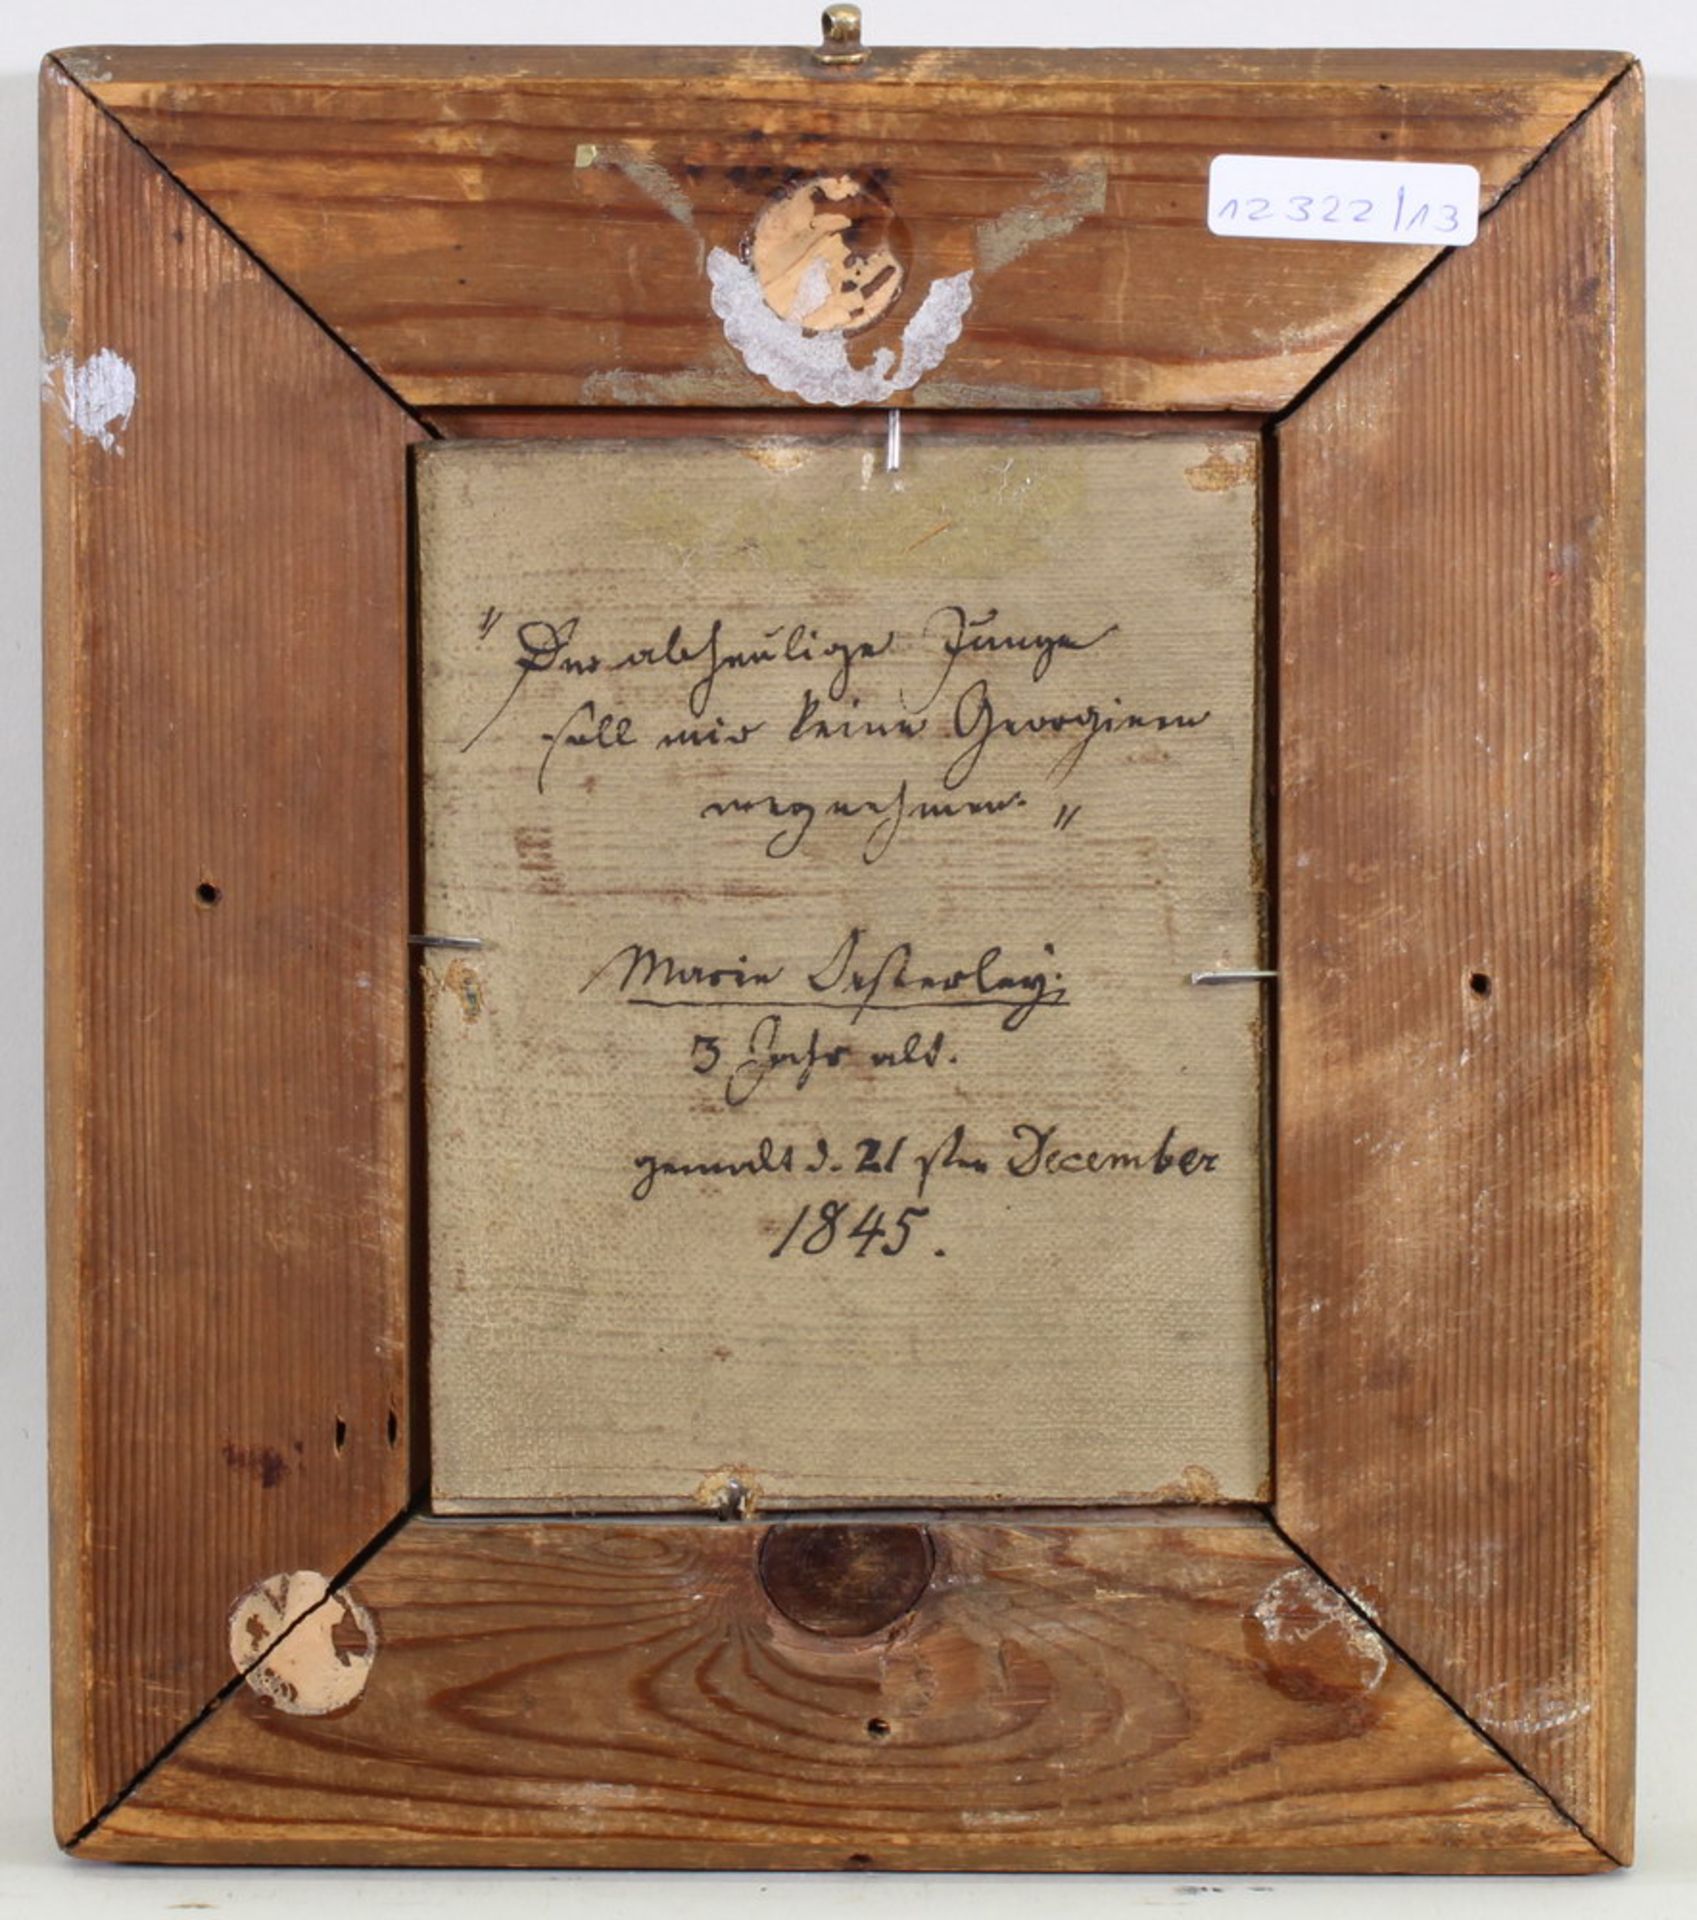 12322/13
"Der abscheulige Junge
soll mir keine Georginen
wegnehmen."
Marie Oesterley.
3 Jahr alt.
gemalt d. 21sten December
1845.